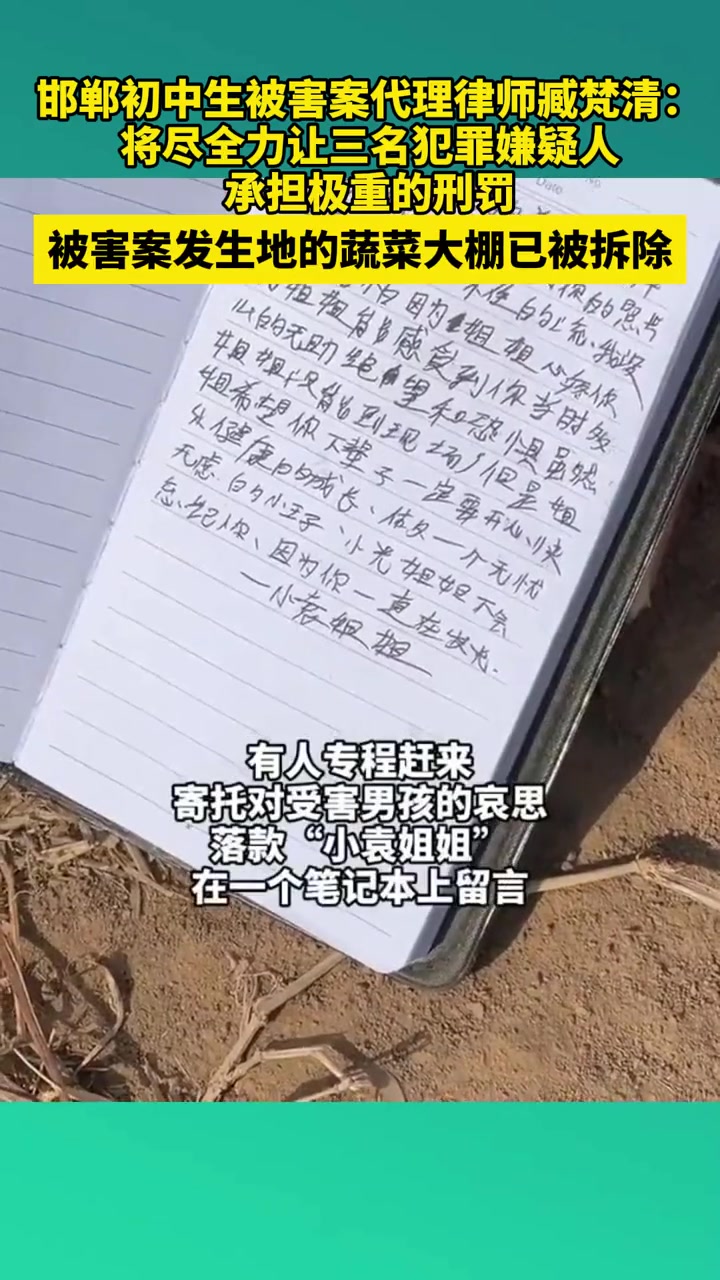 邯郸初中生被害案代理律师臧梵清：
将尽全力让三名犯罪嫌疑人
承担极重的刑罚
No
Date
被害案发生地的蔬菜大棚已被拆除
因为姐姐心疼你
姐姐能感受到你当时
的无助绝望和恐惧虽然
姐姐没能到现场，但是姐
姐希望你下辈子一定要开心快
乐健康的成长、做一个无忧
无虑的小王子、小光姐姐不会
忘记你、因为你一直在发光.
—小袁姐姐
有人专程赶来
寄托对受害男孩的哀思
落款“小袁姐姐”
在一个笔记本上留言